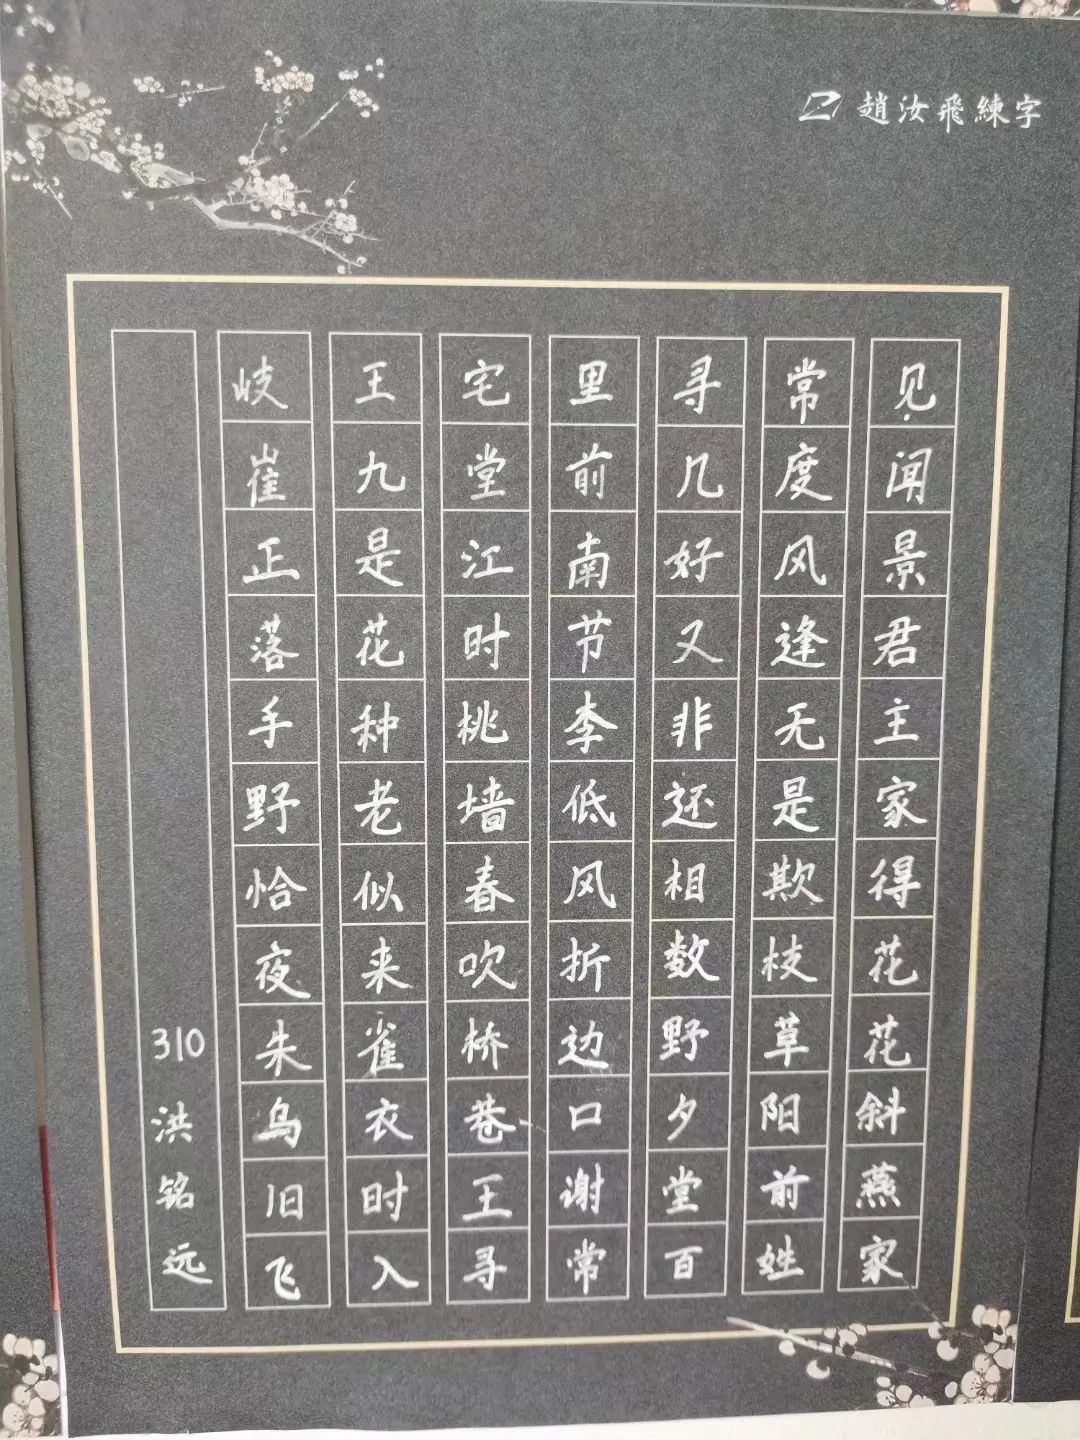 趙汝飛練字
岐王宅里寻常见
崔九堂前几度闻
正是江南好风景
落花时节又逢君
手种桃李非无主
野老墙低还是家
恰似春风相欺得
夜来吹折数枝花
朱雀桥边野草花
乌衣巷口夕阳斜
旧时王谢堂前燕
飞入寻常百姓家
310 洪铭远